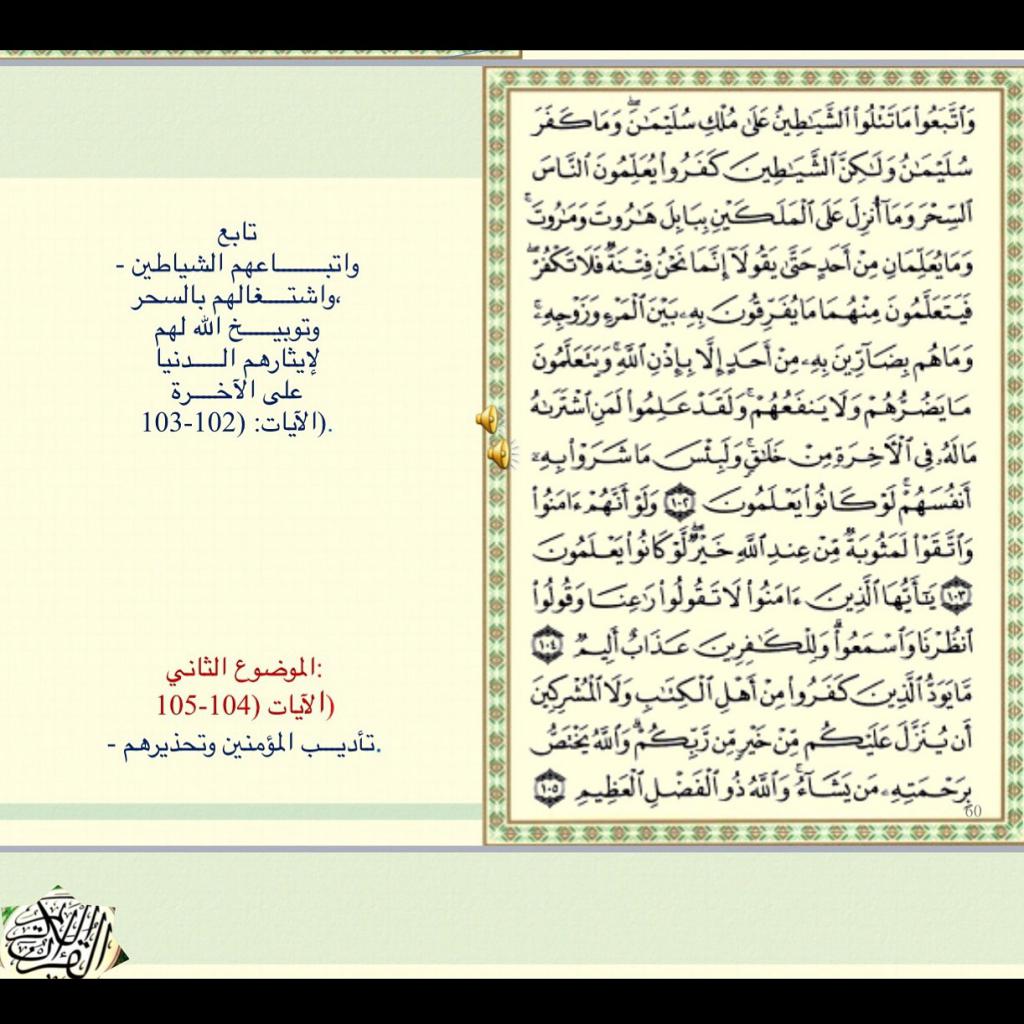 وَٱتَّبَعُوا۟ مَا تَتْلُوا۟ ٱلشَّيَـٰطِينُ عَلَىٰ مُلْكِ سُلَيْمَـٰنَ ۖ وَمَا كَفَرَ
سُلَيْمَـٰنُ وَلَـٰكِنَّ ٱلشَّيَـٰطِينَ كَفَرُوا۟ يُعَلِّمُونَ ٱلنَّاسَ
ٱلسِّحْرَ وَمَآ أُنزِلَ عَلَى ٱلْمَلَكَيْنِ بِبَابِلَ هَـٰرُوتَ وَمَـٰرُوتَ ۚ
وَمَا يُعَلِّمَانِ مِنْ أَحَدٍ حَتَّىٰ يَقُولَآ إِنَّمَا نَحْنُ فِتْنَةٌ فَلَا تَكْفُرْ ۖ
فَيَتَعَلَّمُونَ مِنْهُمَا مَا يُفَرِّقُونَ بِهِۦ بَيْنَ ٱلْمَرْءِ وَزَوْجِهِۦ ۚ
وَمَا هُم بِضَآرِّينَ بِهِۦ مِنْ أَحَدٍ إِلَّا بِإِذْنِ ٱللَّهِ ۚ وَيَتَعَلَّمُونَ
مَا يَضُرُّهُمْ وَلَا يَنفَعُهُمْ ۚ وَلَقَدْ عَلِمُوا۟ لَمَنِ ٱشْتَرَىٰهُ
مَا لَهُۥ فِى ٱلْـَٔاخِرَةِ مِنْ خَلَـٰقٍ ۚ وَلَبِئْسَ مَا شَرَوْا۟ بِهِۦٓ
أَنفُسَهُمْ ۚ لَوْ كَانُوا۟ يَعْلَمُونَ ١٠٢ وَلَوْ أَنَّهُمْ ءَامَنُوا۟
وَٱتَّقَوْا۟ لَمَثُوبَةٌ مِّنْ عِندِ ٱللَّهِ خَيْرٌ ۖ لَّوْ كَانُوا۟ يَعْلَمُونَ
١٠٣ يَـٰٓأَيُّهَا ٱلَّذِينَ ءَامَنُوا۟ لَا تَقُولُوا۟ رَٰعِنَا وَقُولُوا۟
ٱنظُرْنَا وَٱسْمَعُوا۟ ۗ وَلِلْكَـٰفِرِينَ عَذَابٌ أَلِيمٌ ١٠٤
مَّا يَوَدُّ ٱلَّذِينَ كَفَرُوا۟ مِنْ أَهْلِ ٱلْكِتَـٰبِ وَلَا ٱلْمُشْرِكِينَ
أَن يُنَزَّلَ عَلَيْكُم مِّنْ خَيْرٍ مِّن رَّبِّكُمْ ۗ وَٱللَّهُ يَخْتَصُّ
بِرَحْمَتِهِۦ مَن يَشَآءُ ۚ وَٱللَّهُ ذُو ٱلْفَضْلِ ٱلْعَظِيمِ ١٠٥
60
تابع
- واتباعهم الشياطين
،واشتغالهم بالسحر
وتوبيخ الله لهم
لإيثارهم الدنيا
على الآخرة
.(الآيات: (102-103
:الموضوع الثاني
(الآيات (104-105
- تأديب المؤمنين وتحذيرهم.
القرآن الكريم